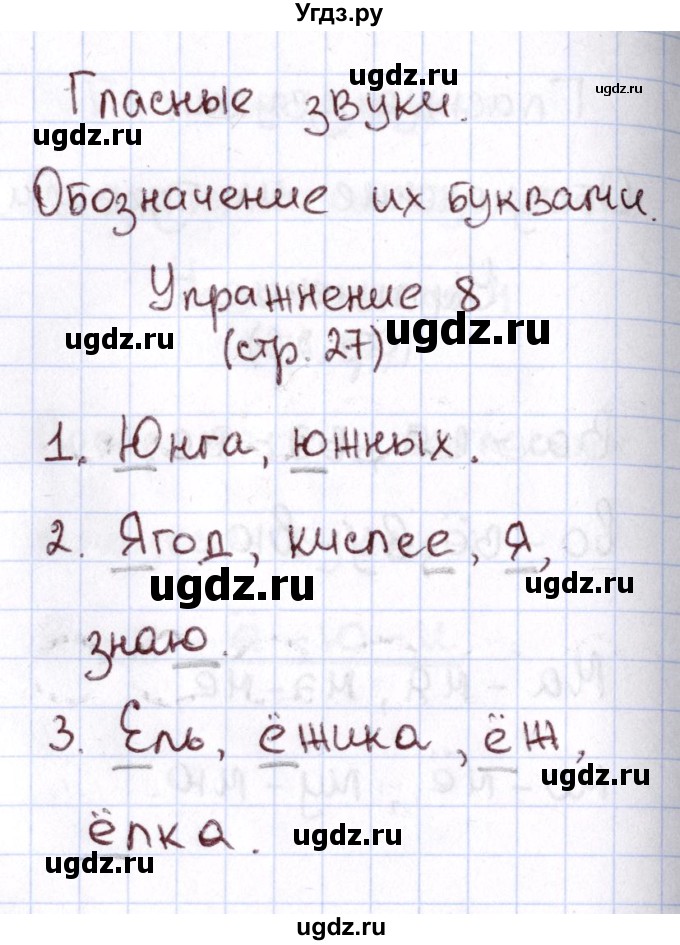 Угдз.ру
ugdz.ru
ugdz.ru
Гласные звуки.
ugdz.ru
Обозначение их буквами.
Упражнение 8
ugdz.ru
ugdz.ru
(стр. 27)
1. Юнга, южных.
2. Ягод, кислее, я,
ugdz.ru
ugdz.ru
знаю.
3. Ель, ёжика, ёж,
ugdz.ru
ёлка.
ugdz.ru
ugdz.ru
ugdz.ru